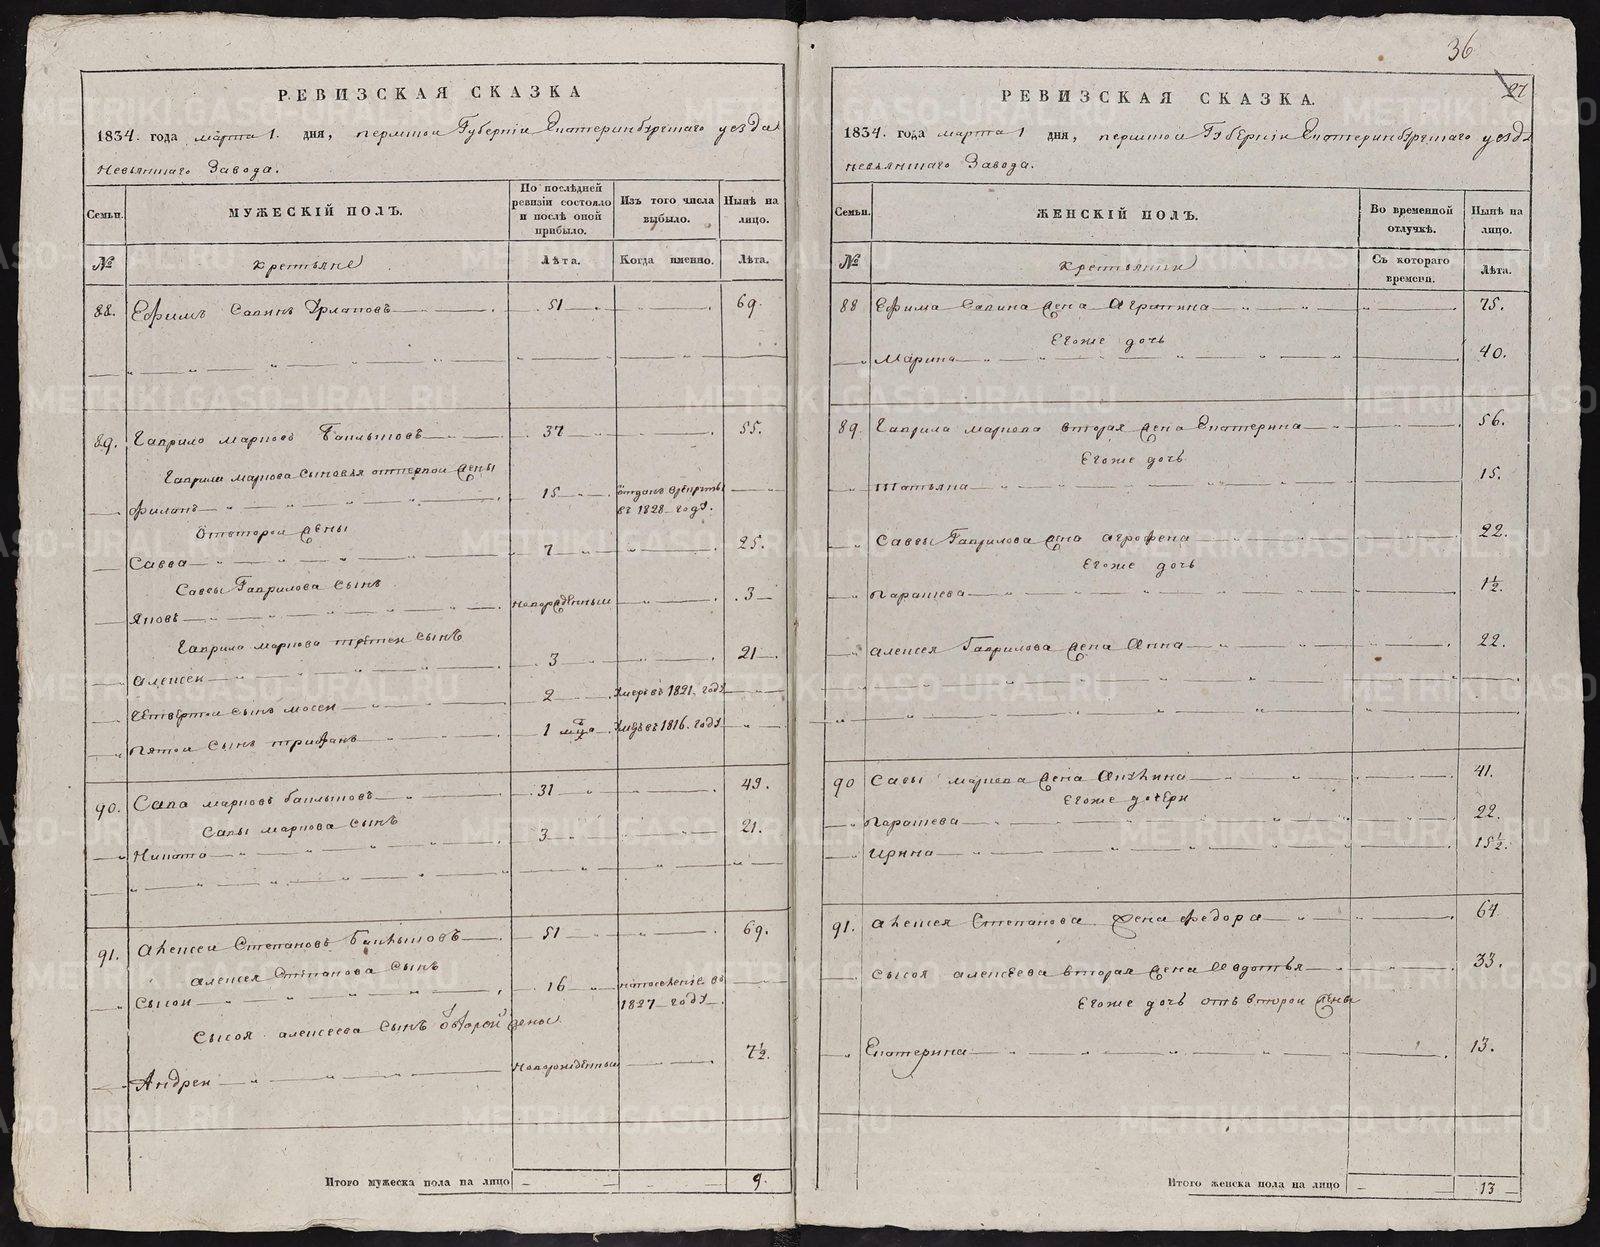 РЕВИЗСКАЯ СКАЗКА
1834. года марта 1. дня, пермской Губерніи Екатеринбургскаго уезда
Невьянскаго Завода.
Семьи.
МУЖЕСКІЙ ПОЛЪ.
По послѣдней ревизіи состояло и послѣ оной прибыло.
Изъ того числа выбыло.
Нынѣ на лицо.
№
крестьяне
Лѣта.
Когда именно.
Лѣта.
88. Ефимъ Савинъ 51 69.
89. Гаврило Марковъ 37 55.
Гаврила Маркова сыновья отпервой жены
Филатъ 15 отданъ врекруты
въ 1828 году.
Отвторой жены
Савва 7 25.
Саввы Гаврилова сынъ
Яковъ новорожденный 3
Гаврила Маркова третей сынъ
Алексей 3 21
Четвертой сынъ Мосей 2 Умеръ въ 1821. году
Пятой сынъ Трифанъ 1 мца Умеръ въ 1816. году
90. Сава Марковъ 31 49.
Савы Маркова сынъ
Никита 3 21.
91. Алексей Степановъ 51 69.
Алексея Степанова сынъ
Сысой 16 напоселеніе въ
1827 году
Сысоя Алексеева сынъ отвторой жены
Андрей Новорожденный 7½.
Итого мужеска пола на лицо 9.
36
27
РЕВИЗСКАЯ СКАЗКА.
1834. года марта 1 дня, пермской Губерніи Екатеринбургскаго уезда
невьянскаго Завода.
Семьи.
ЖЕНСКІЙ ПОЛЪ.
Во временной отлучкѣ.
Нынѣ на лицо.
№
крестьянки
Съ котораго времени.
Лѣта.
88 Ефима Савина жена Агрипина 75.
Егоже дочь
Марина 40.
89. Гаврила Маркова вторая жена Екатерина 56.
Егоже дочь
Татьяна 15.
Саввы Гаврилова жена Агрофена 22.
Егоже дочь
Парасева 1½.
Алексея Гаврилова жена Анна 22.
90 Савы Маркова жена Акулина 41.
Егоже дочери
Парасева 22.
Ирина 15½.
91. Алексея Степанова жена Федора 64
Сысоя Алексеева вторая жена Авдотья 33.
Егоже дочь отъ второй жены
Екатерина 13.
Итого женска пола на лицо 13
METRIKI.GASO-URAL.RU